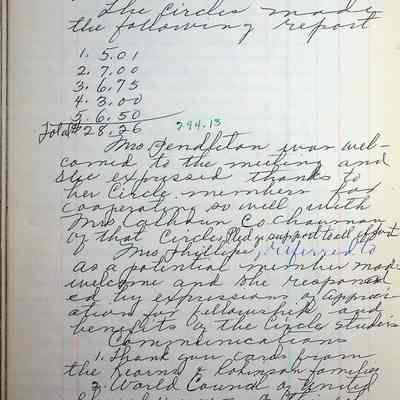 The Circles made
the following report
1. 5.01
2. 7.00
3. 6.75
4. 3.00
5. 6.50
Total $28.26 294.13
Mrs. Pendleton was wel-
comed to the meeting and
she expressed thanks to
her Circle members for
cooperating so well with
Mrs. Calhoun Co chairman
of that Circle, Pled support to all effort
Mrs. Phillips, referred to
as a potential member made
welcome and she respond
ed by expressions of appreci-
ation for fellowship and
benefits of the Circle studies
Communications
1. Thank you cards from
the Kearns & Robinson families
2. World Council of United